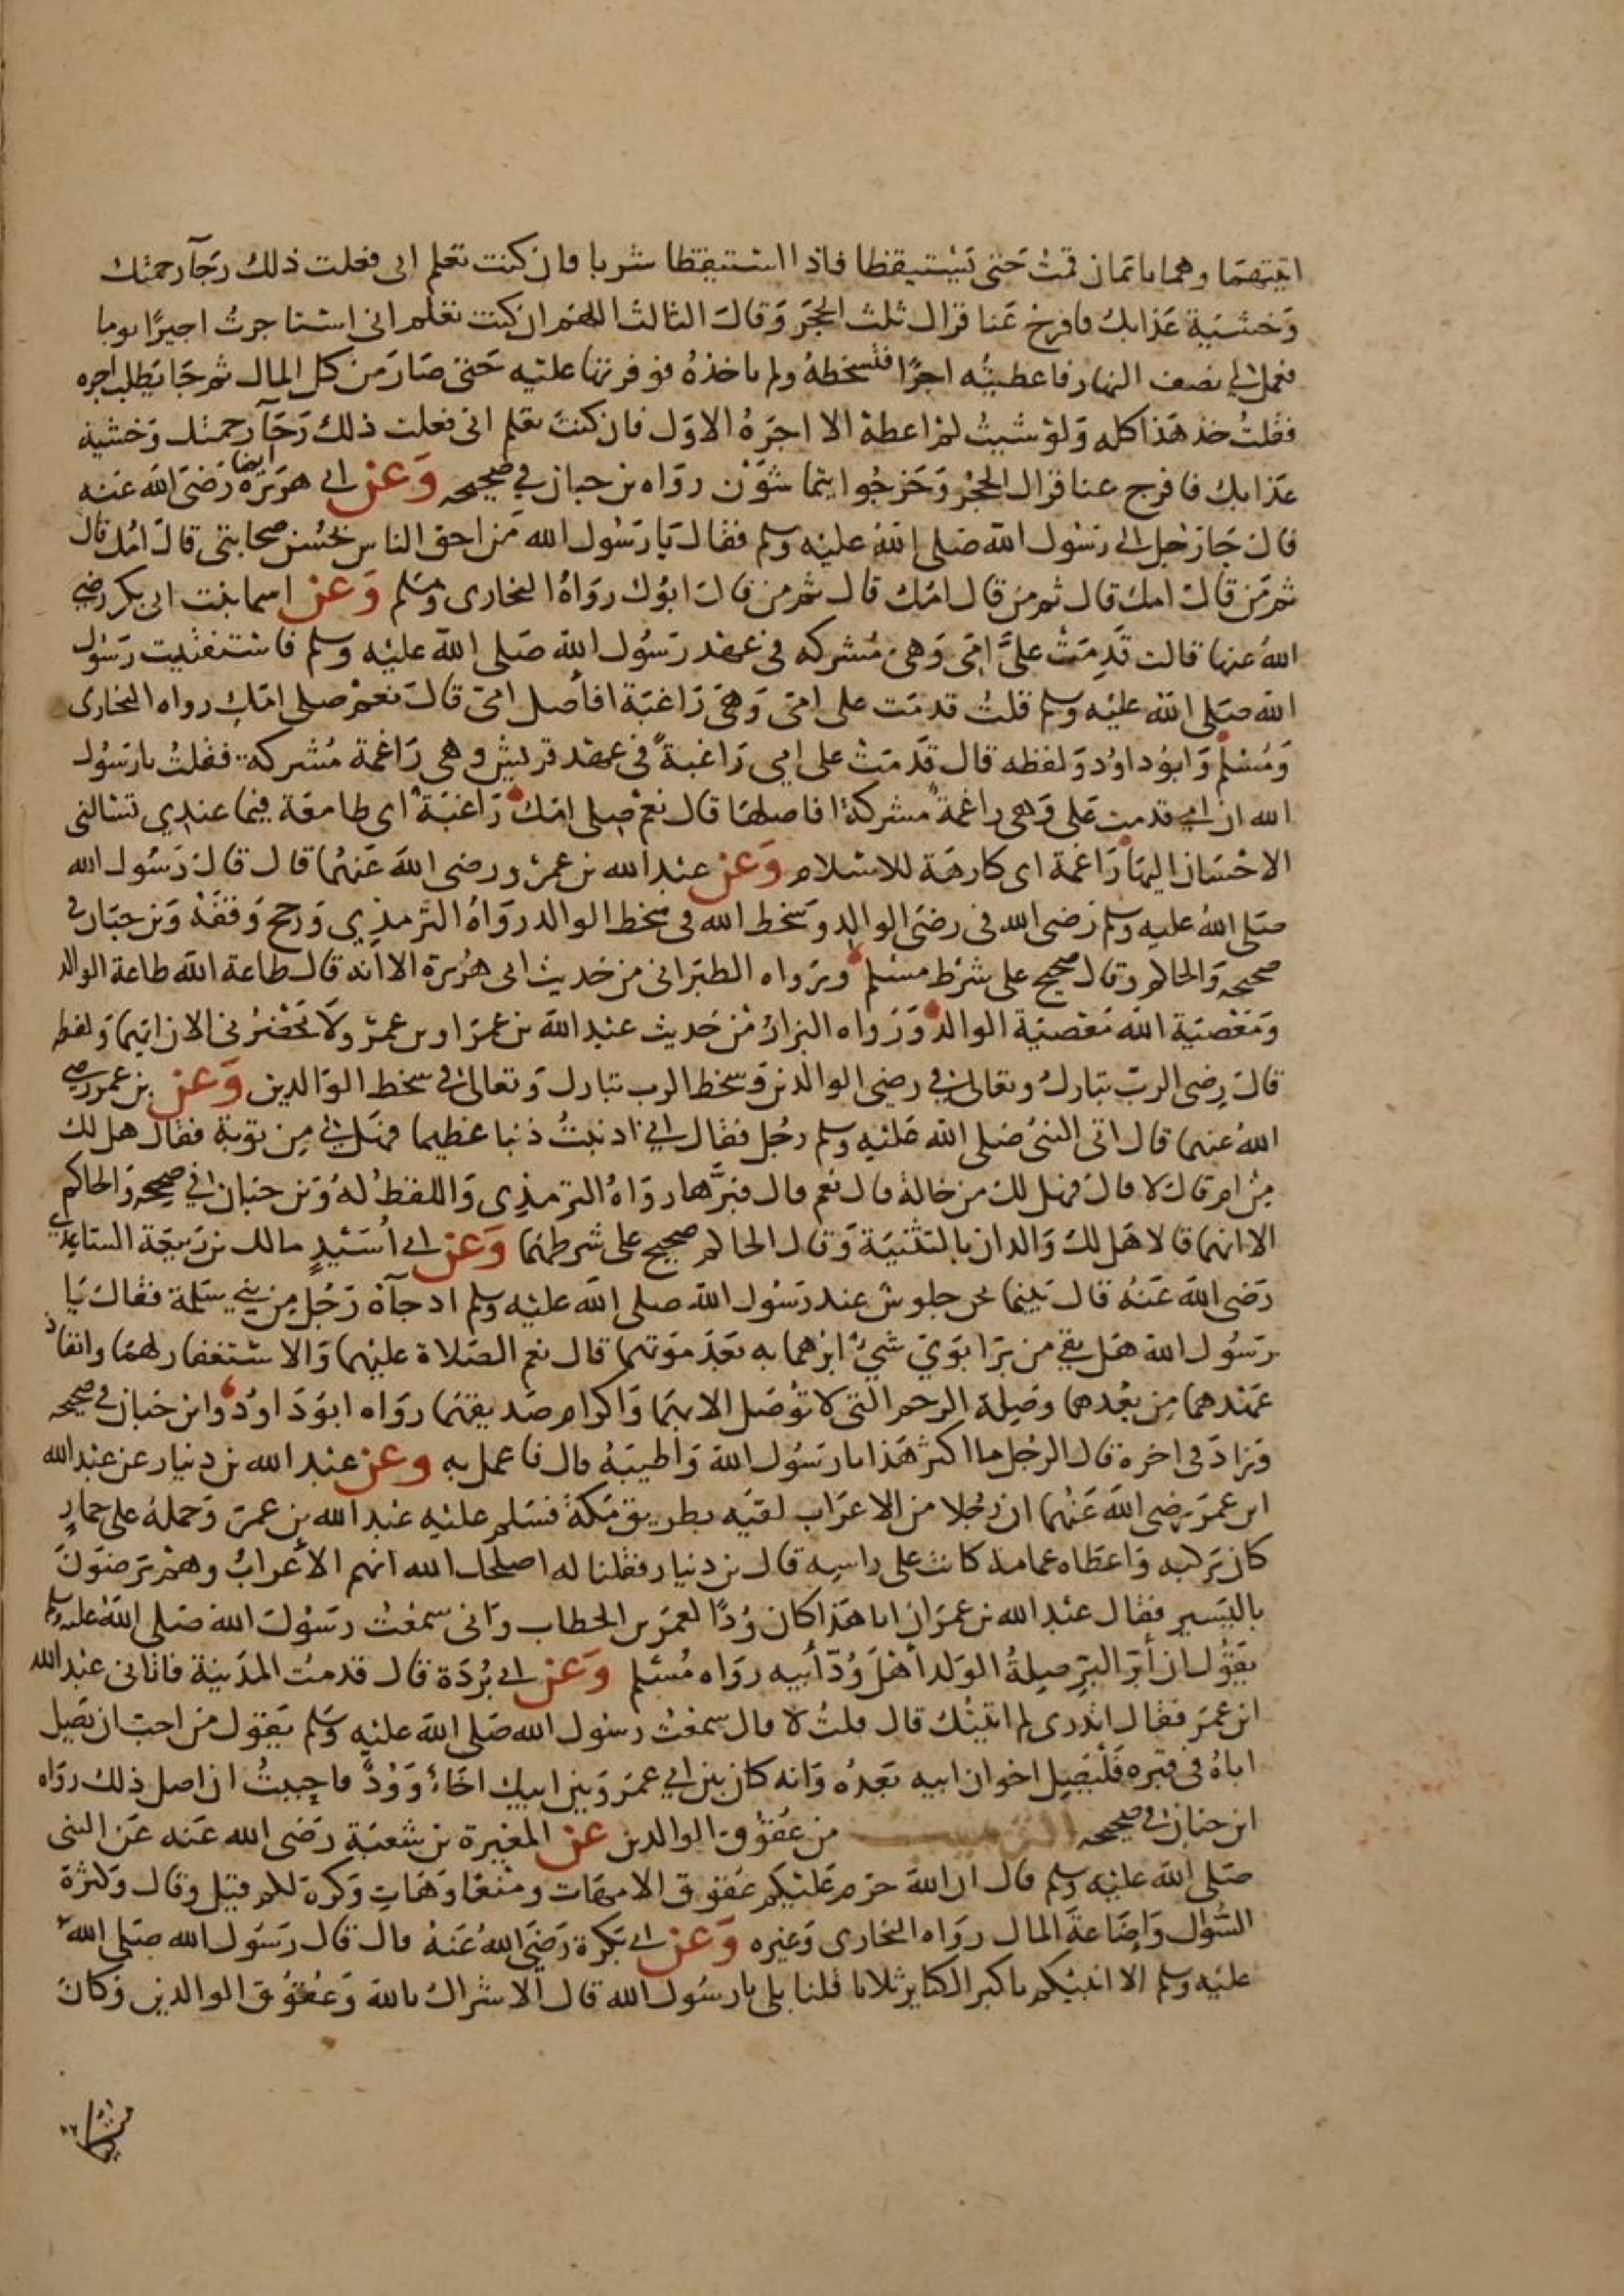 اتيتهما وهما نائمان قمت حتى يستيقظا فاذا استيقظا شربا فان كنت تعلم انى فعلت ذلك رجآ رحمتك
وخشية عذابك فافرج عنا فزال ثلث الحجر وقال الثالث اللهم ان كنت تعلم انى استاجرت اجيرا يوما
فعمل لي نصف النهار فاعطيته اجرا فتسخطه ولم ياخذه فوفرتها عليه حتى صار من كل المال ثم جا يطلب اجره
فقلت خذ هذا كله ولو شيت لم اعطه الا اجره الاول فان كنت تعلم انى فعلت ذلك رجآ رحمتك وخشية
عذابك فافرج عنا فزال الحجر وخرجوا يتماشون رواه بن حبان في صحيحه وعن ابي هريرة ايضا رضى الله عنه
قال جا رجل الى رسول الله صلى الله عليه وسلم فقال يا رسول الله من احق الناس بحسن صحابتى قال امك قال
ثم من قال امك قال ثم من قال امك قال ثم من قال ابوك رواه البخارى ومسلم وعن اسما بنت ابى بكر رضي
الله عنها قالت قدمت عليَّ امى وهى مشركه فى عهد رسول الله صلى الله عليه وسلم فاستفتيت رسول
الله صلى الله عليه وسلم قلت قدمت على امى وهى راغبة افأصل امى قال نعم صلى امك رواه البخارى
ومسلم وابو داود ولفظه قال قدمت على امى راغبة فى عهد قريش وهى راغمة مشركة فقلت يا رسول
الله ان امي قدمت على وهى راغمة مشركة افاصلها قال نعم صلى امك راغبة اى طامعة فيما عندي تسالنى
الاحسان اليها راغمة اى كارهة للاسلام وعن عبد الله بن عمرو رضى الله عنهما قال قال رسول الله
صلى الله عليه وسلم رضى الله فى رضى الوالد وسخط الله فى سخط الوالد رواه الترمذي ورجح وقفه وبن حبان في
صحيحه والحاكم وقال صحيح على شرط مسلم ورواه الطبرانى من حديث ابى هريرة الا انه قال طاعة الله طاعة الوالد
ومعصية الله معصية الوالد ورواه البزار من حديث عبد الله بن عمر او بن عمرو ولا يحضرنى الان ايهما ولفظه
قال رضى الرب تبارك وتعالى في رضى الوالدين وسخط الرب تبارك وتعالى في سخط الوالدين وعن بن عمر رضي
الله عنهما قال اتى النبى صلى الله عليه وسلم رجل فقال اني اذنبت ذنبا عظيما فهل لي من توبة فقال هل لك
من ام قال لا قال فهل لك من خالة قال نعم قال فبرَّها رواه الترمذى واللفظ له وبن حبان في صحيحه والحاكم
الا انهما قالا هل لك والدان بالتثنية وقال الحاكم صحيح على شرطهما وعن ابي أسيد مالك بن ربيعة الساعدي
رضى الله عنه قال بينما نحن جلوس عند رسول الله صلى الله عليه وسلم اذ جآه رجل من بني سلمة فقال يا
رسول الله هل بقي من بر ابوي شي ابرهما به بعد موتهما قال نعم الصلاة عليهما والاستغفار لهما وانفاذ
عهدهما من بعدهما وصلة الرحم التى لا توصل الا بهما واكرام صديقهما رواه ابو داود وابن حبان في صحيحه
وزاد فى اخره قال الرجل ما اكثر هذا يا رسول الله واطيبه قال فاعمل به وعن عبد الله بن دينار عن عبد الله
ابن عمر رضى الله عنهما ان رجلا من الاعراب لقيه بطريق مكة فسلم عليه عبد الله بن عمر وحمله على حمار
كان يركبه واعطاه عمامة كانت على راسه قال بن دينار فقلنا له اصلحك الله انهم الأعراب وهم يرضون
باليسير فقال عبد الله بن عمر ان ابا هذا كان ودا لعمر بن الخطاب وانى سمعت رسول الله صلى الله عليه وسلم
يقول ان أبر البر صلة الولد أهل ود أبيه رواه مسلم وعن ابي بردة قال قدمت المدينة فاتانى عبد الله
ابن عمر فقال اتدرى لم اتيتك قال قلت لا قال سمعت رسول الله صلى الله عليه وسلم يقول من احب ان يصل
اباه فى قبره فليصل اخوان ابيه بعده وانه كان بين ابي عمر وبين ابيك اخاء وود فاحببت ان اصل ذلك رواه
ابن حبان فى صحيحه الترهيب من عقوق الوالدين عن المغيرة بن شعبة رضى الله عنه عن النبى
صلى الله عليه وسلم قال ان الله حرم عليكم عقوق الامهات ومنعا وهات وكره لكم قيل وقال وكثرة
السوال واضاعة المال رواه البخارى وغيره وعن ابي بكرة رضى الله عنه قال قال رسول الله صلى الله
عليه وسلم الا انبيكم باكبر الكباير ثلاثا قلنا بلى يا رسول الله قال الاشراك بالله وعقوق الوالدين وكان